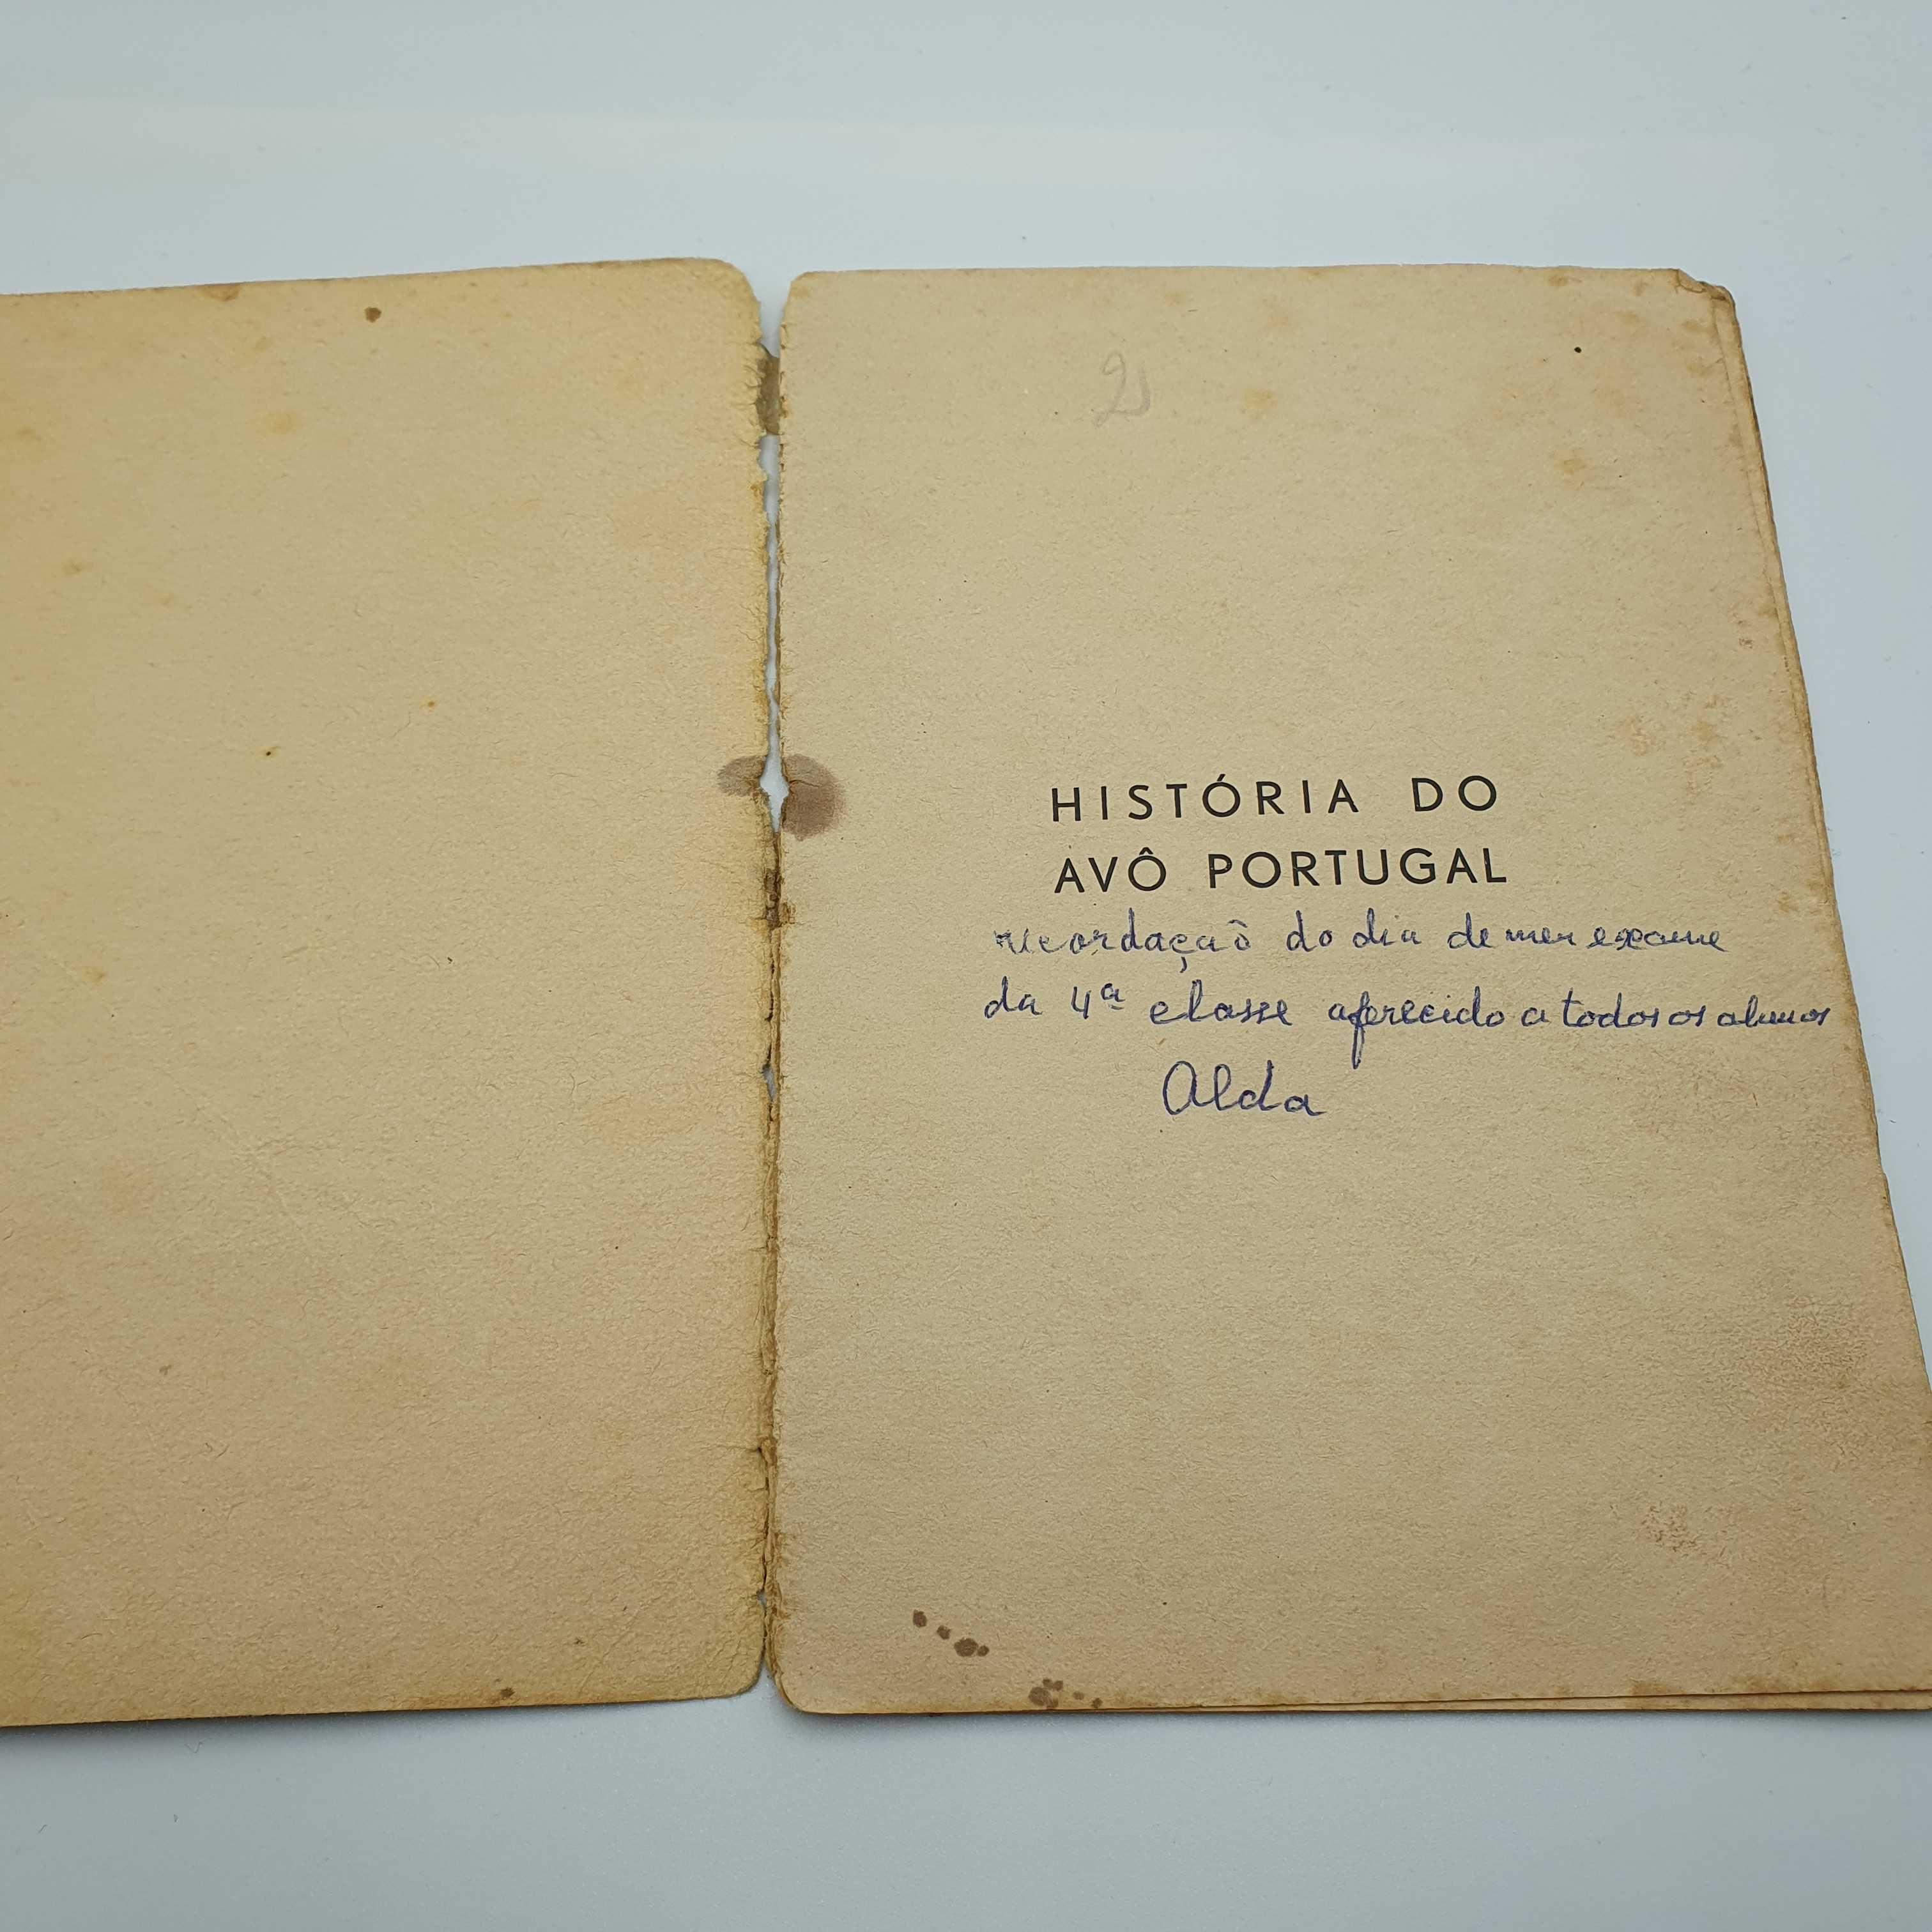 2
HISTÓRIA DO
AVÔ PORTUGAL
recordaçaõ do dia de meu exame
da 4ª classe oferecido a todos os alunos
Alda